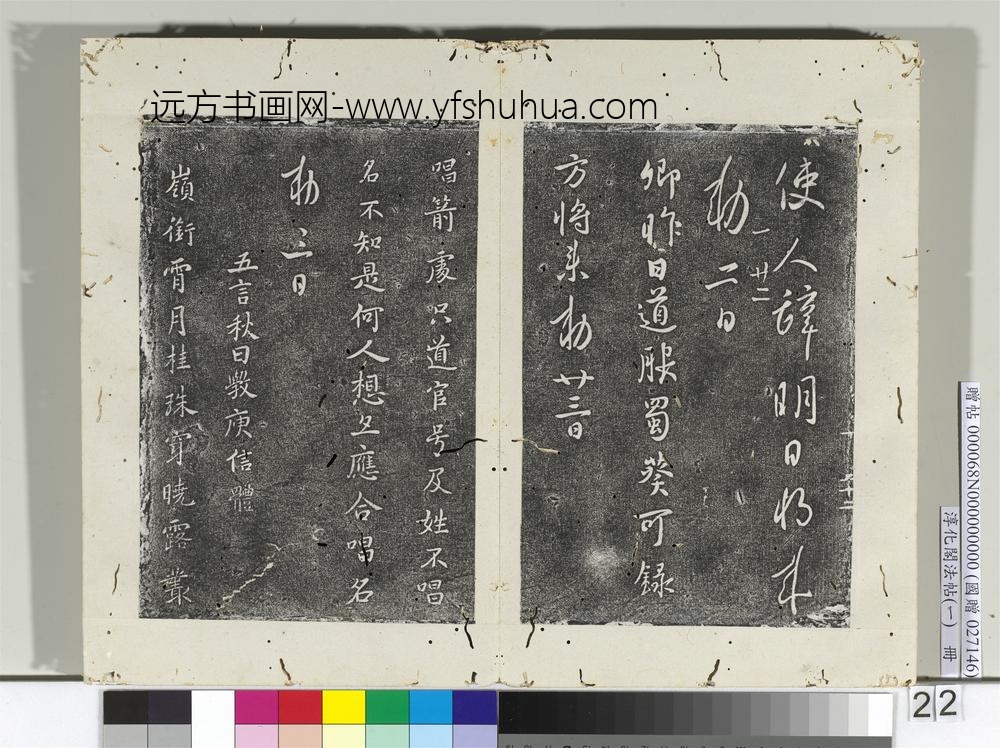 远方书画网-www.yfshuhua.com
使人辞明日将来
勅 二日
一 廿二
卿昨日道服蜀葵可録
方将来勅廿三日
唱箭處只道官号及姓不唱
名不知是何人想立應合唱名
勅 三日
五言秋日斆庾信體
嶺銜霄月桂珠穿曉露叢
贈帖 000068N000000000 (國贈 027146)
淳化閣法帖(一) 冊
22